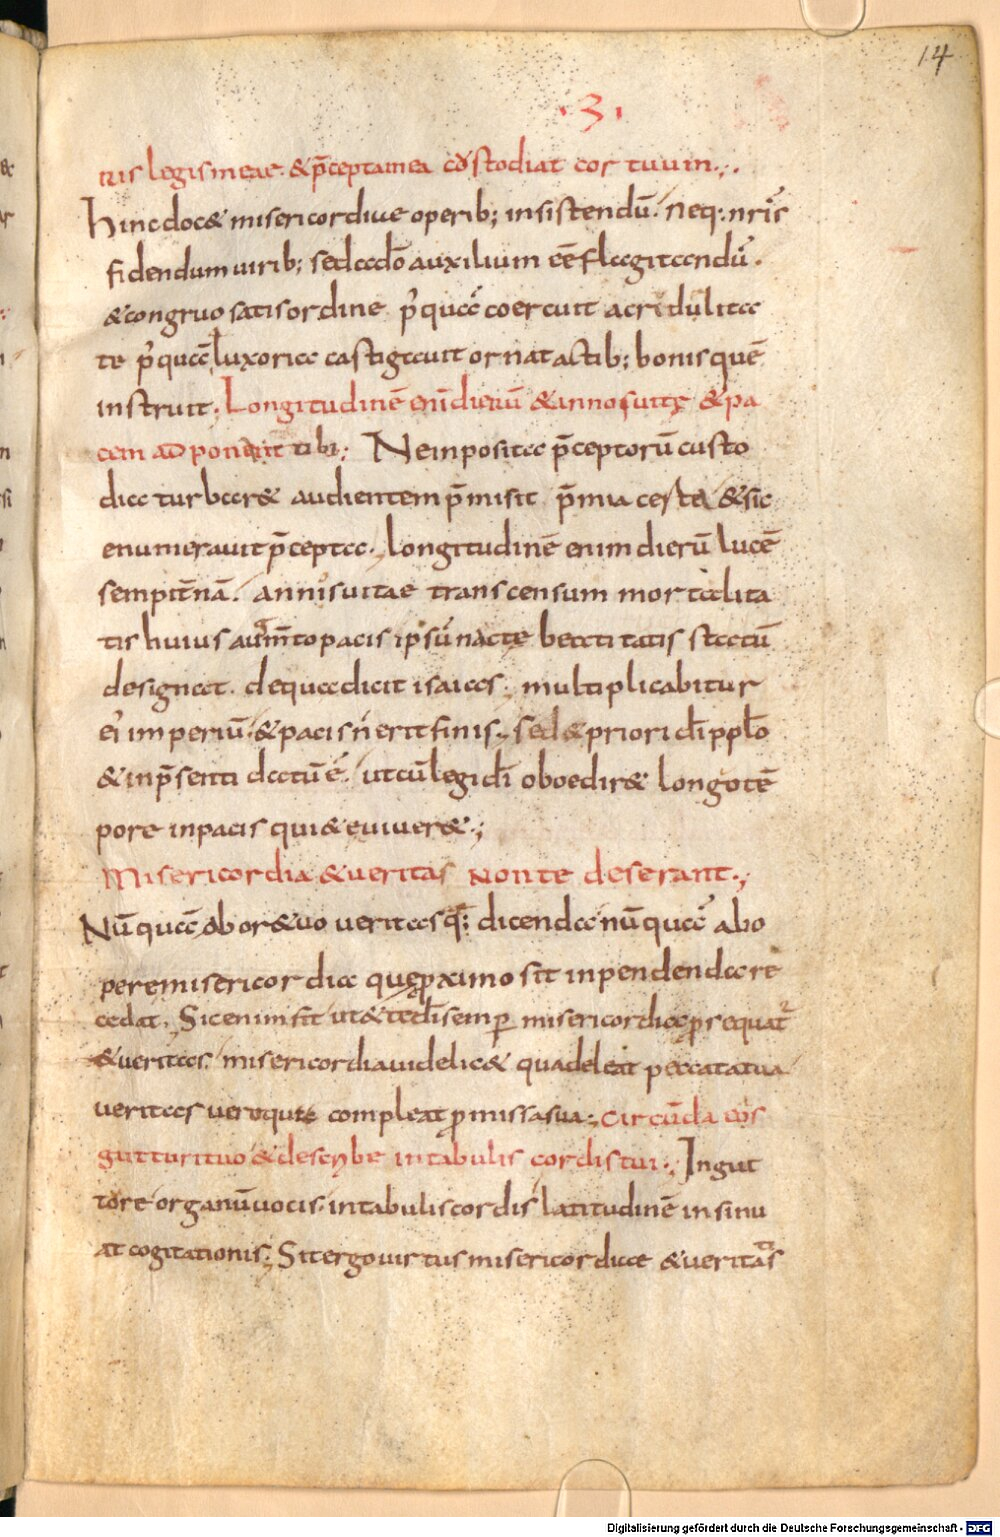 14
· 3 ·
ris legis meae. & p̄cepta mea custodiat cor tuum.,.
hinc doc& misericordiae operib; insistendū. neq: nr̄is
fidendum virib; sed ad dō auxilium eē flagitandū.
& congruo satis ordine p̄quā coercuit acredulita
te p̄quā luxoria castigauit ornat actib; bonis quē
instruit. Longitudinē enī dierū & annos uitę & pa
cem adponent tibi; Ne imposita p̄ceptorū custo
dia turbar& audientem p̄misit p̄mia certa & sic
enumerauit p̄cepta. Longitudinē enim dierū lucē
sempit̄nā. annis uitae transcensum mortalita
tis huius aut̄ m̄to pacis ipsū nacte beatitatis statū
designat. de qua dicit isaias; multiplicabitur
ei' imperiū & pacis ń erit finis. sed & priori dī pplō
& in p̄senti datū ē. ut cū legi dī oboedir& longo tē
pore in pacis qui&e uiuer&.;
Misericordia & veritas non te deserant.;
Nūquā ab or& uo veritas q; dicenda nūquā abo
pere misericordia quę proximo sit inpendenda re
cedat. Sic enim fit ut & te dī semp misericordia psequat'
& veritas. misericordia uidelic& qua deleat peccata tua
veritas vero qua compleat pmissa sua; circūda eas
gutturi tuo & descrybe in tabulis cordis tui.; In gut
tore organū uocis. in tabulis cordis latitudinē insinu
at cogitationis; Sit ergo uirtus misericordiae & veritatis
Digitalisierung gefördert durch die Deutsche Forschungsgemeinschaft - DFG